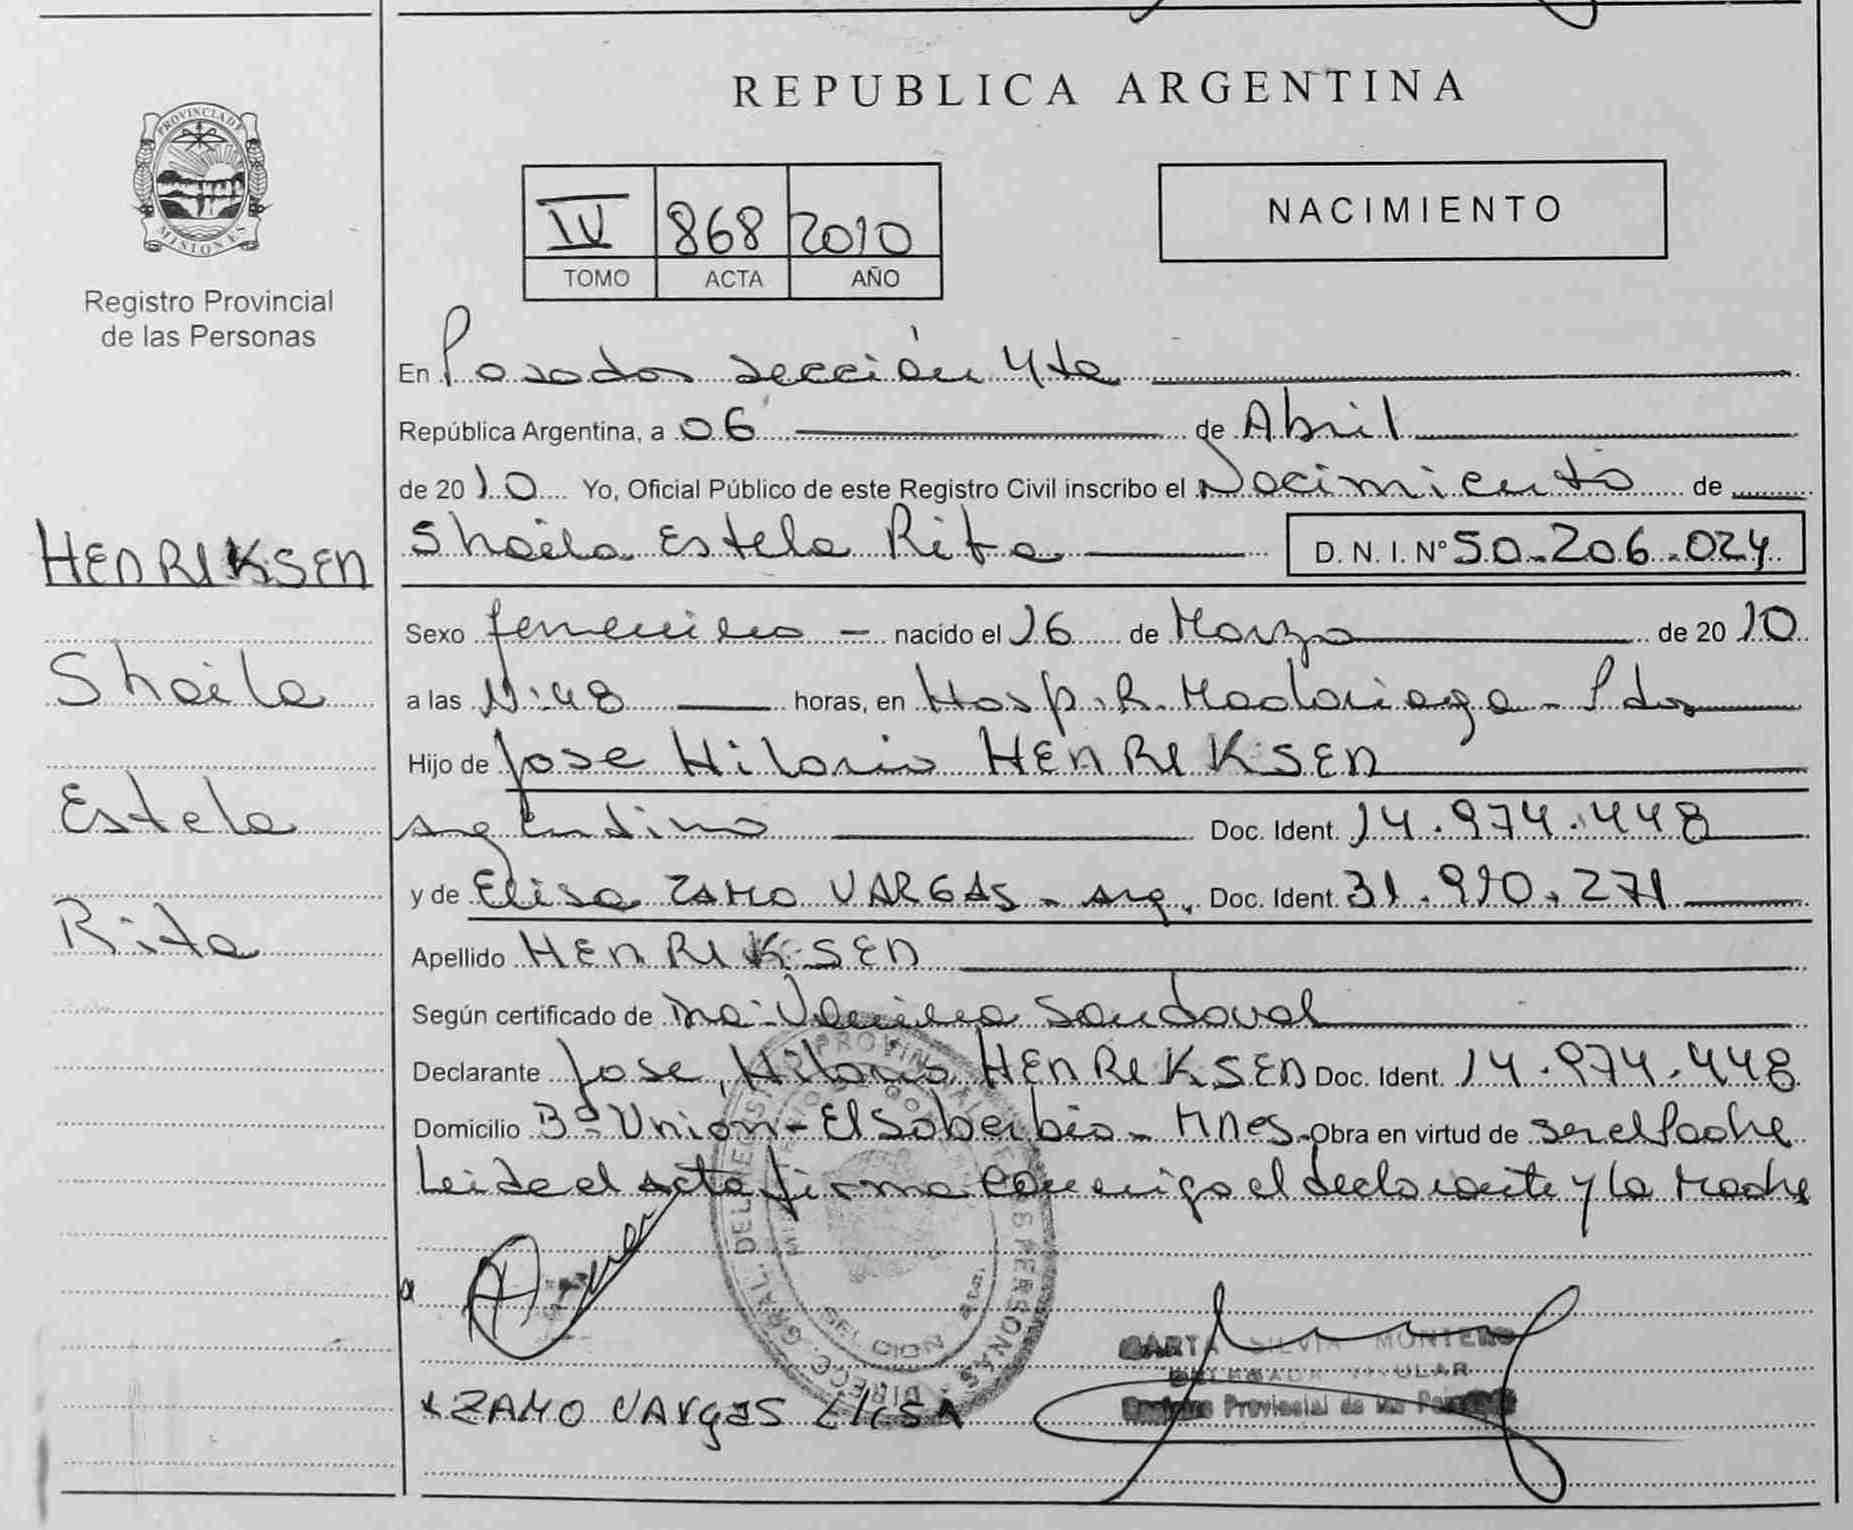 REPUBLICA ARGENTINA
PROVINCIA DE
MISIONES
Registro Provincial
de las Personas
IV 868 2010
TOMO ACTA AÑO
NACIMIENTO
HENRIKSEN
Shaila
Estela
Rita
En Posadas sección 4ta
República Argentina, a 06 de Abril
de 2010 Yo, Oficial Público de este Registro Civil inscribo el Nacimiento de
Shaila Estela Rita D. N. I. N° 50.206.024
Sexo femenino - nacido el 16 de Marzo de 2010
a las 11:48 horas, en Hosp. R. Madariaga - Pdas
Hijo de Jose Hilario HENRIKSEN
argentino Doc. Ident. 14.974.448
y de Elisa ZAMO VARGAS - arg. Doc. Ident. 31.910.271
Apellido HENRIKSEN
Según certificado de Dra. Sandoval
Declarante Jose, Hilario HENRIKSEN Doc. Ident. 14.974.448
Domicilio Bº Unión - El Soberbio - Mnes. Obra en virtud de ser el Padre
Leída el acta firma conmigo el declarante y la Madre
x ZAMO VARgAS ELiSA
SILVIA MONTERO
TITULAR
Provincial de las